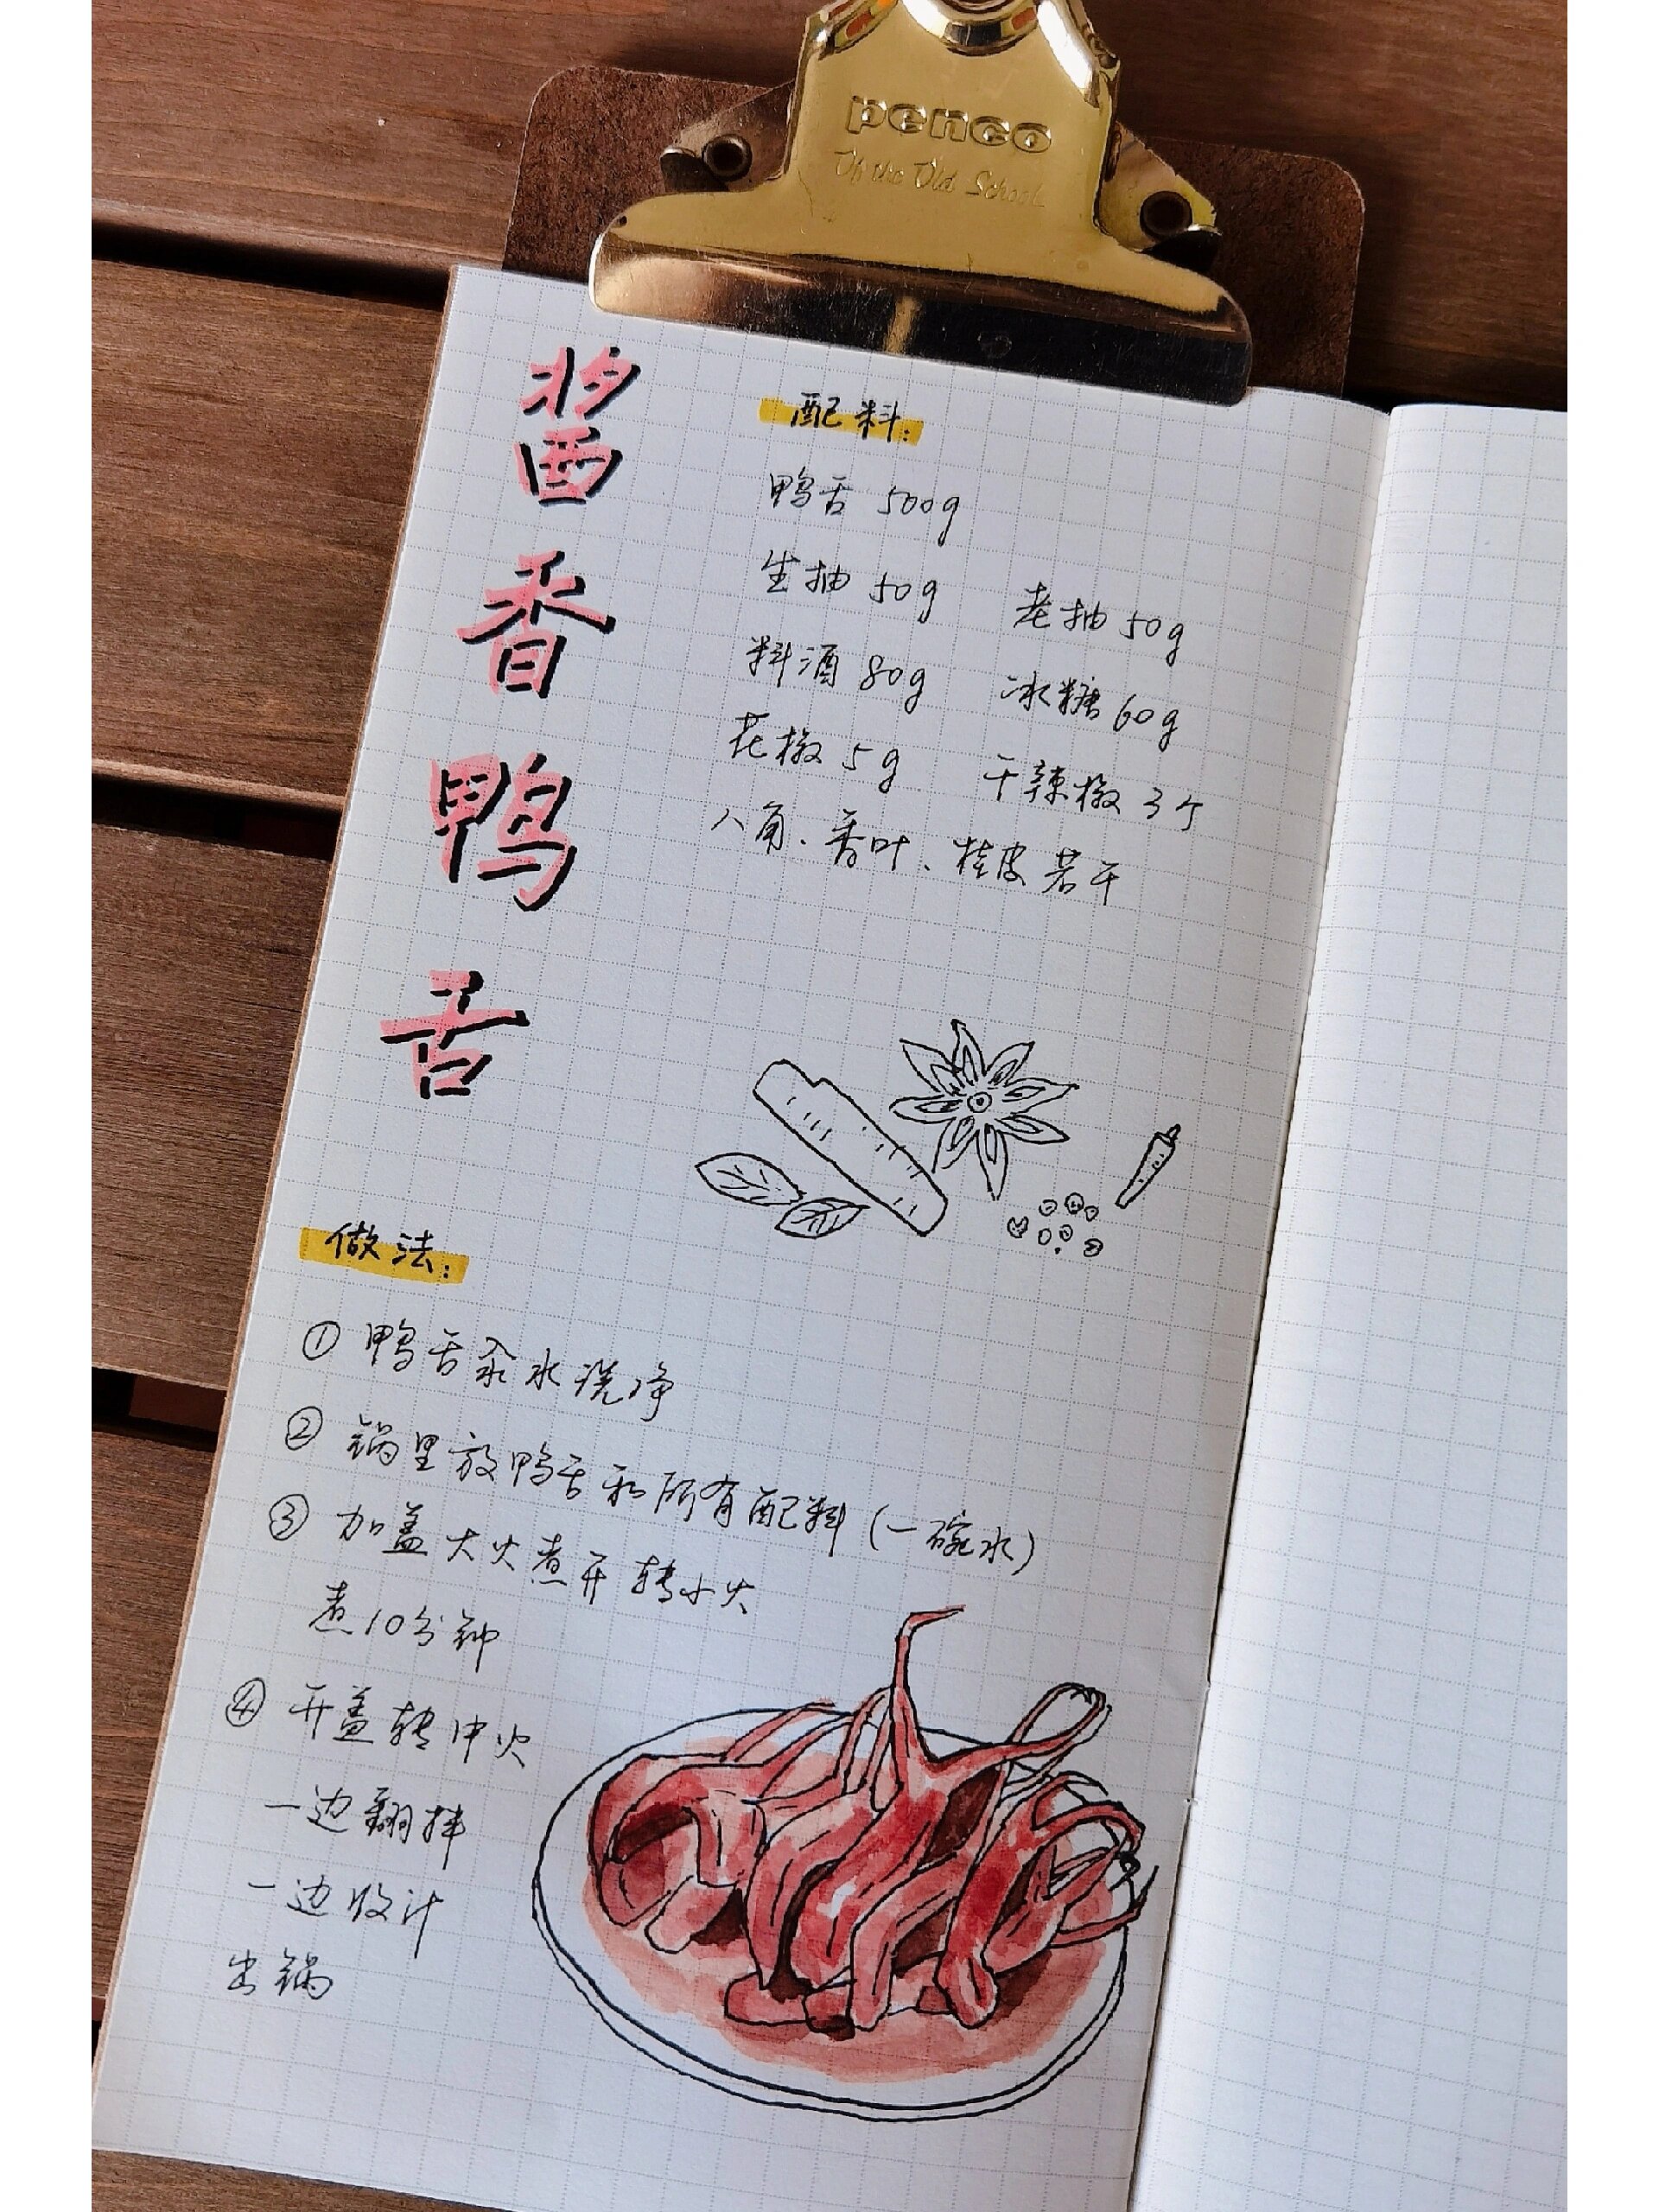 penco
Of the Old School
酱香鸭舌
配料:
鸭舌 500g
生抽 50g 老抽 50g
料酒 80g 冰糖 60g
花椒 5g 干辣椒 3个
八角、香叶、桂皮若干
做法:
① 鸭舌汆水洗净
② 锅里放鸭舌和所有配料(一碗水)
③ 加盖大火煮开转小火
煮10分钟
④ 开盖转中火
一边翻拌
一边收汁
出锅